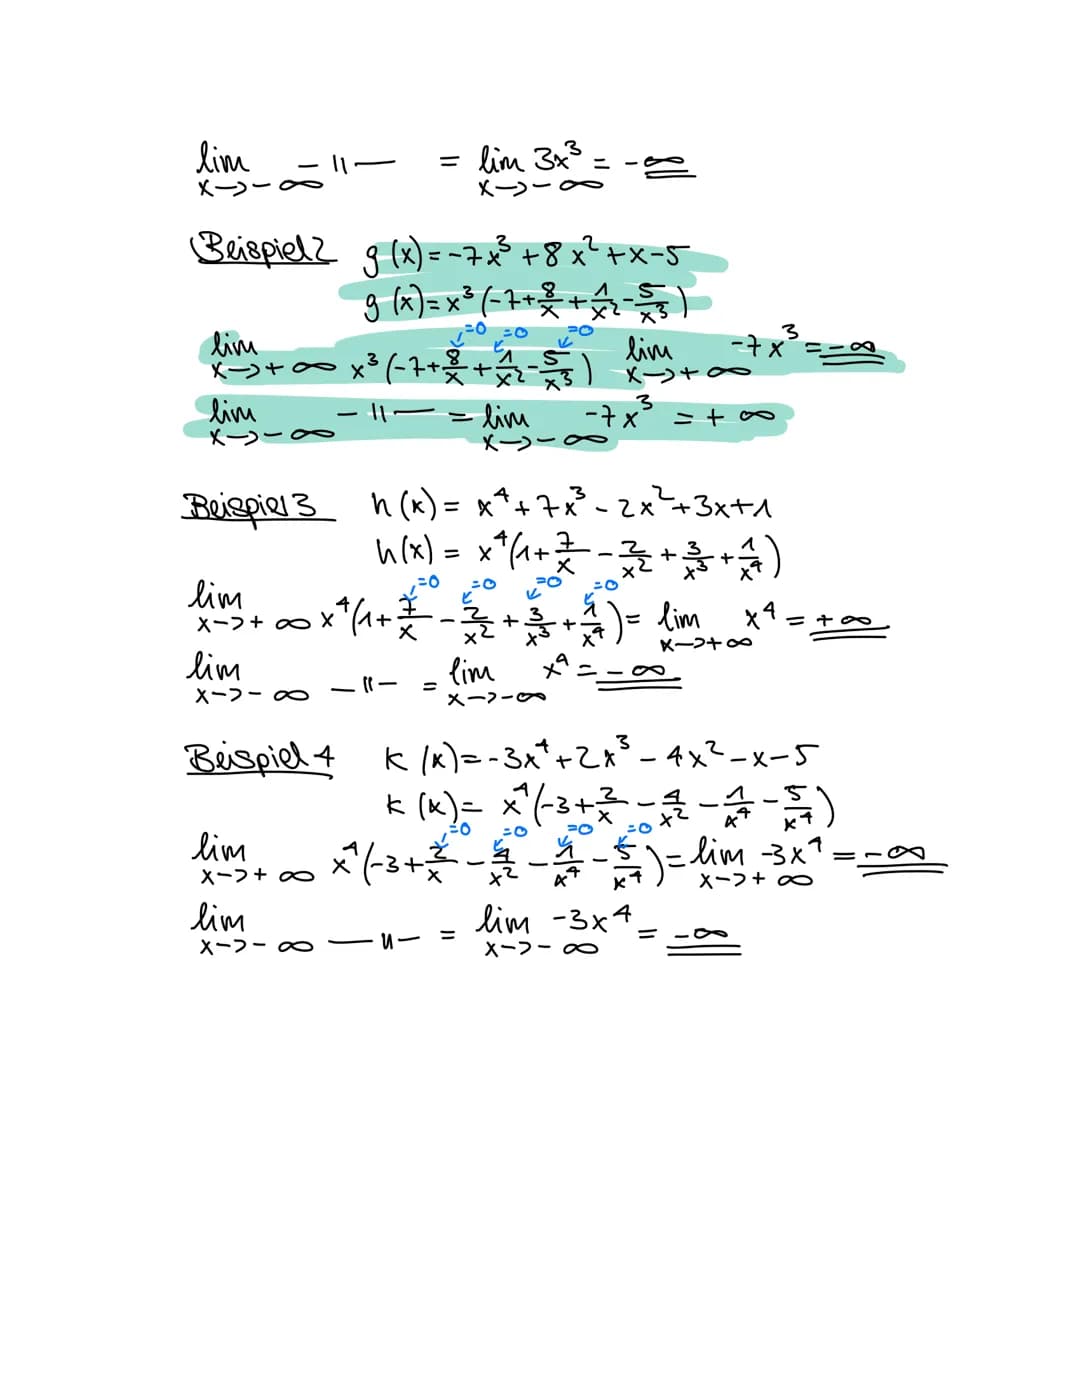 lim x→-∞ —"— = lim x→-∞ 3x³ = -∞
Beispiel 2 g(x) = -7x³ + 8x² + x - 5
g(x) = x³(-7 + 8/x + 1/x² - 5/x³)
=0 =0 =0
lim x→+∞ x³(-7 + 8/x + 1/x² - 5/x³) lim x→+∞ -7x³ = -∞
lim x→-∞ —"— = lim x→-∞ -7x³ = +∞
Beispiel 3 h(x) = x⁴ + 7x³ - 2x² + 3x + 1
h(x) = x⁴(1 + 7/x - 2/x² + 3/x³ + 1/x⁴)
=0 =0 =0 =0
lim x→+∞ x⁴(1 + 7/x - 2/x² + 3/x³ + 1/x⁴) = lim x→+∞ x⁴ = +∞
lim x→-∞ —"— = lim x→-∞ x⁴ = -∞
Beispiel 4 K(x) = -3x⁴ + 2x³ - 4x² - x - 5
K(x) = x⁴(-3 + 2/x - 4/x² - 1/x⁴ - 5/x⁴)
=0 =0 =0 =0
lim x→+∞ x⁴(-3 + 2/x - 4/x² - 1/x⁴ - 5/x⁴) = lim x→+∞ -3x⁴ = -∞
lim x→-∞ —"— = lim x→-∞ -3x⁴ = -∞